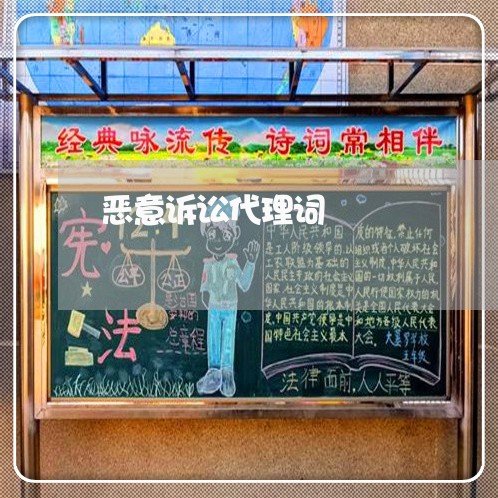 经典咏流传 诗词常相伴
恶意诉讼代理词
宪
法
公平
公正
总章程
中华人民共和国
是工人阶级领导的,以
工农联盟为基础的
人民民主专政的社会主义
国家,社会主义制度是中
华人民共和国的根本制
度,中国共产党领导是中
国特色社会主义最本
质的特征,禁止任何
组织或者个人破坏社会
主义制度,中华人民共和
国的一切权利属于人民,
人民行使国家权力的机
关是全国人民代表大会
和地方各级人民代表
大会。
五年级
法律面前,人人平等